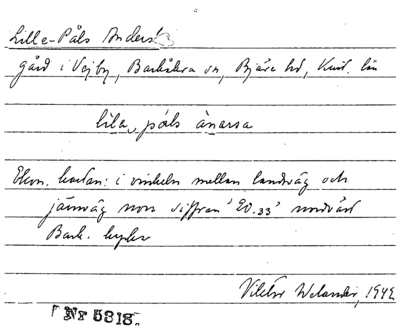 Lille-Påls Anders
gård i Vejby, Barkåkra sn, Bjäre hd, Krist. län
lila, påls ànarsa
Ekon. kartan: i vinkeln mellan landsväg och
järnväg norr siffran '20.33' nordväst
Bark. kyrka
Viktor Welander, 1942
Nr 5318.